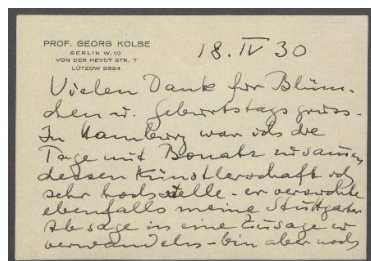 PROF. GEORG KOLBE
BERLIN W. 10
VON DER HEYDT STR. 7
LÜTZOW 9824
18. IV 30
Vielen Dank für Blüm-
chen u. Geburtstagsgruss.
In Hamburg war ich die
Tage mit Bonatz zusammen
dessen Künstlerschaft ich
sehr hoch stelle - er versuchte
ebenfalls meine Stuttgarter
Absage in eine Zusage zu
verwandeln - bin aber noch